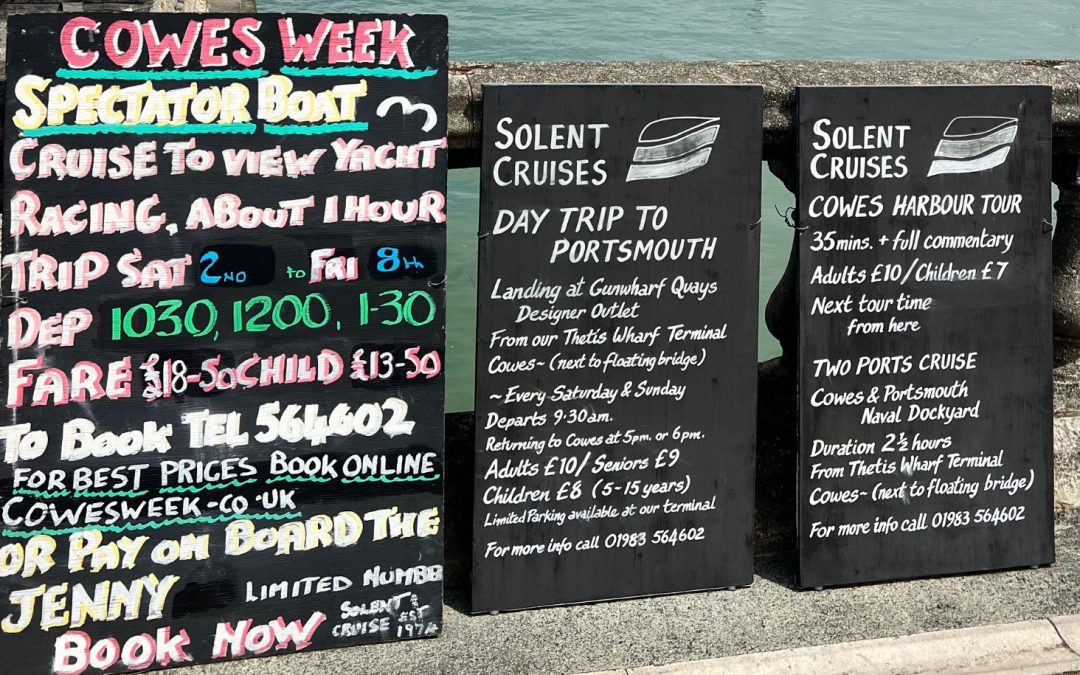 COWES WEEK
SPECTATOR BOAT
CRUISE TO VIEW YACHT
RACING, ABOUT 1 HOUR
TRIP SAT 2ND to FRI 8th
DEP 1030, 1200, 1-30
FARE £18-50 CHILD £13-50
TO BOOK TEL 564602
FOR BEST PRICES BOOK ONLINE
COWESWEEK-CO-UK
OR PAY ON BOARD THE
JENNY LIMITED
BOOK NOW
SOLENT
CRUISE EST
1974
SOLENT
CRUISES
DAY TRIP TO
PORTSMOUTH
Landing at Gunwharf Quays
Designer Outlet
From our Thetis Wharf Terminal
Cowes~ (next to floating bridge)
~ Every Saturday & Sunday
Departs 9·30am.
Returning to Cowes at 5pm. or 6pm.
Adults £10/ Seniors £9
Children £8 (5-15 years)
Limited Parking available at our terminal
For more info call 01983 564602
SOLENT
CRUISES
COWES HARBOUR TOUR
35mins. + full commentary
Adults £10/Children £7
Next tour time
from here
TWO PORTS CRUISE
Cowes & Portsmouth
Naval Dockyard
Duration 2½ hours
From Thetis Wharf Terminal
Cowes~ (next to floating bridge)
For more info call 01983 564602